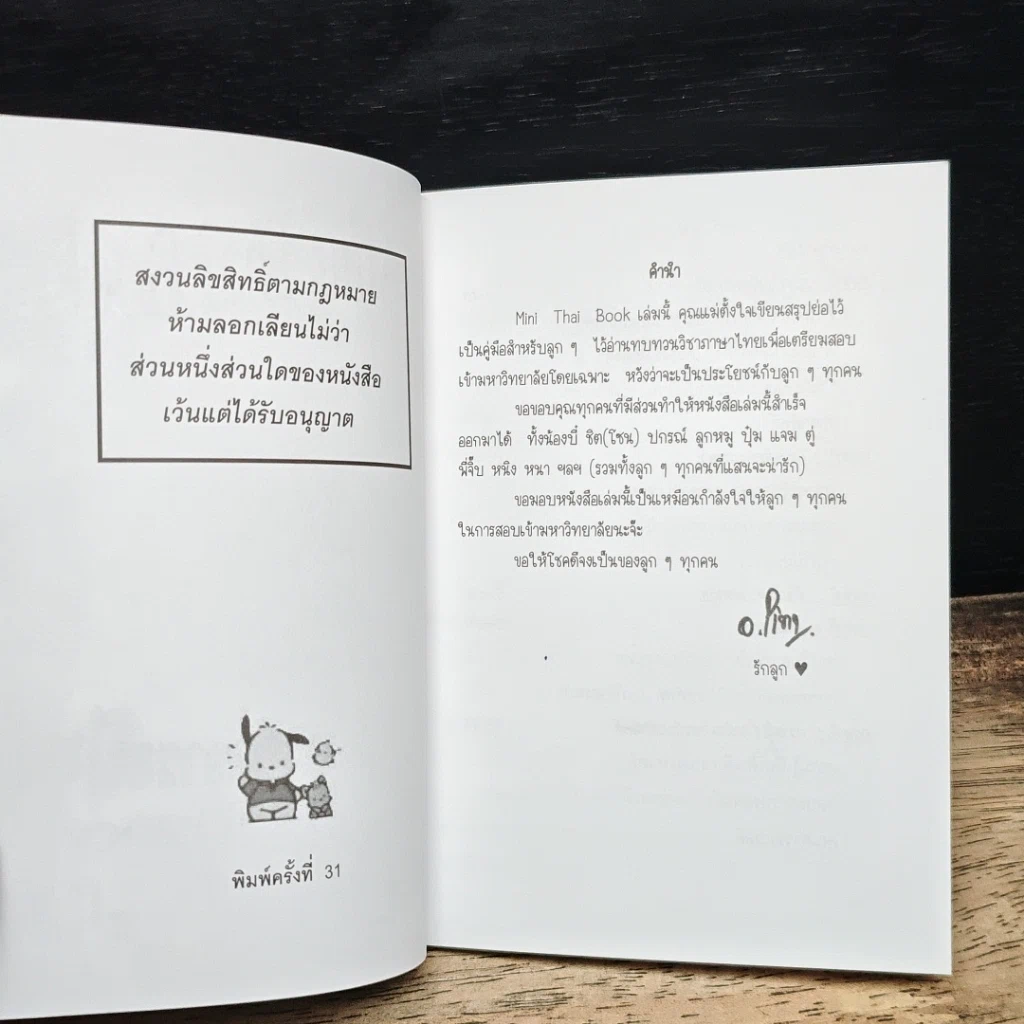 สงวนลิขสิทธิ์ตามกฎหมาย
ห้ามลอกเลียนไม่ว่า
ส่วนหนึ่งส่วนใดของหนังสือ
เว้นแต่ได้รับอนุญาต
พิมพ์ครั้งที่ 31
คำนำ
Mini Thai Book เล่มนี้ คุณแม่ตั้งใจเขียนสรุปย่อไว้
เป็นคู่มือสำหรับลูก ๆ ไว้อ่านทบทวนวิชาภาษาไทยเพื่อเตรียมสอบ
เข้ามหาวิทยาลัยโดยเฉพาะ หวังว่าจะเป็นประโยชน์กับลูก ๆ ทุกคน
ขอขอบคุณทุกคนที่มีส่วนทำให้หนังสือเล่มนี้สำเร็จ
ออกมาได้ ทั้งน้องบี๋ ชิต(โซน) ปกรณ์ ลูกหมู ปุ๋ม แจม ตู่
พี่จิ๊บ หนิง หนา ฯลฯ (รวมทั้งลูก ๆ ทุกคนที่แสนจะน่ารัก)
ขอมอบหนังสือเล่มนี้เป็นเหมือนกำลังใจให้ลูก ๆ ทุกคน
ในการสอบเข้ามหาวิทยาลัยนะจ๊ะ
ขอให้โชคดีจงเป็นของลูก ๆ ทุกคน
รักลูก ♥